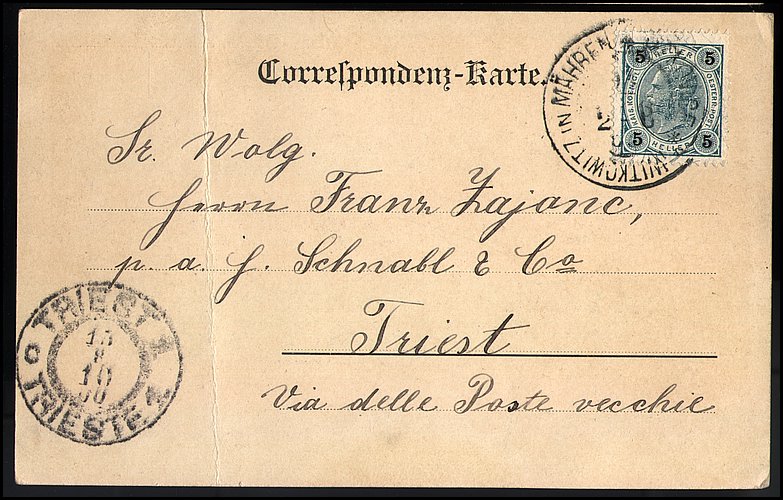 Correspondenz-Karte.
WITKOWITZ IN MÄHREN
5 HELLER 5
KAIS. KOENIGL. OESTERR. POST
5 HELLER 5
Sr. Wolg.
Herrn Franz Zajanc,
p. a. J. Schnabl & Co
Triest
Via delle Poste vecchie
TRIEST 1
15
10
00
TRIESTE 1